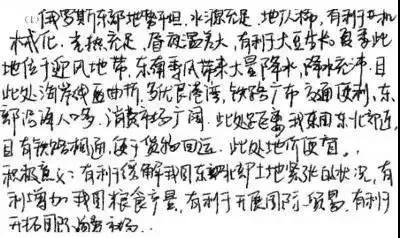 俄罗斯东部地势平坦,水源充足,地广人稀,有利于农机
械化。光热充足,昼夜温差大,有利于大豆生长,夏季此
地位于迎风地带,东南季风带来大量降水,降水充沛。且
此处海岸线曲折,多优良港湾,铁路广布,交通便利,东
部沿海人口多,消费市场广阔。此处距离我国东北部近,
且有铁路相通,便于货物回运。此处地价便宜。
积极意义:有利于缓解我国东北部土地紧张的状况,有
利增加我国粮食产量,有利于开展国际贸易,有利于
开拓国际海外市场..